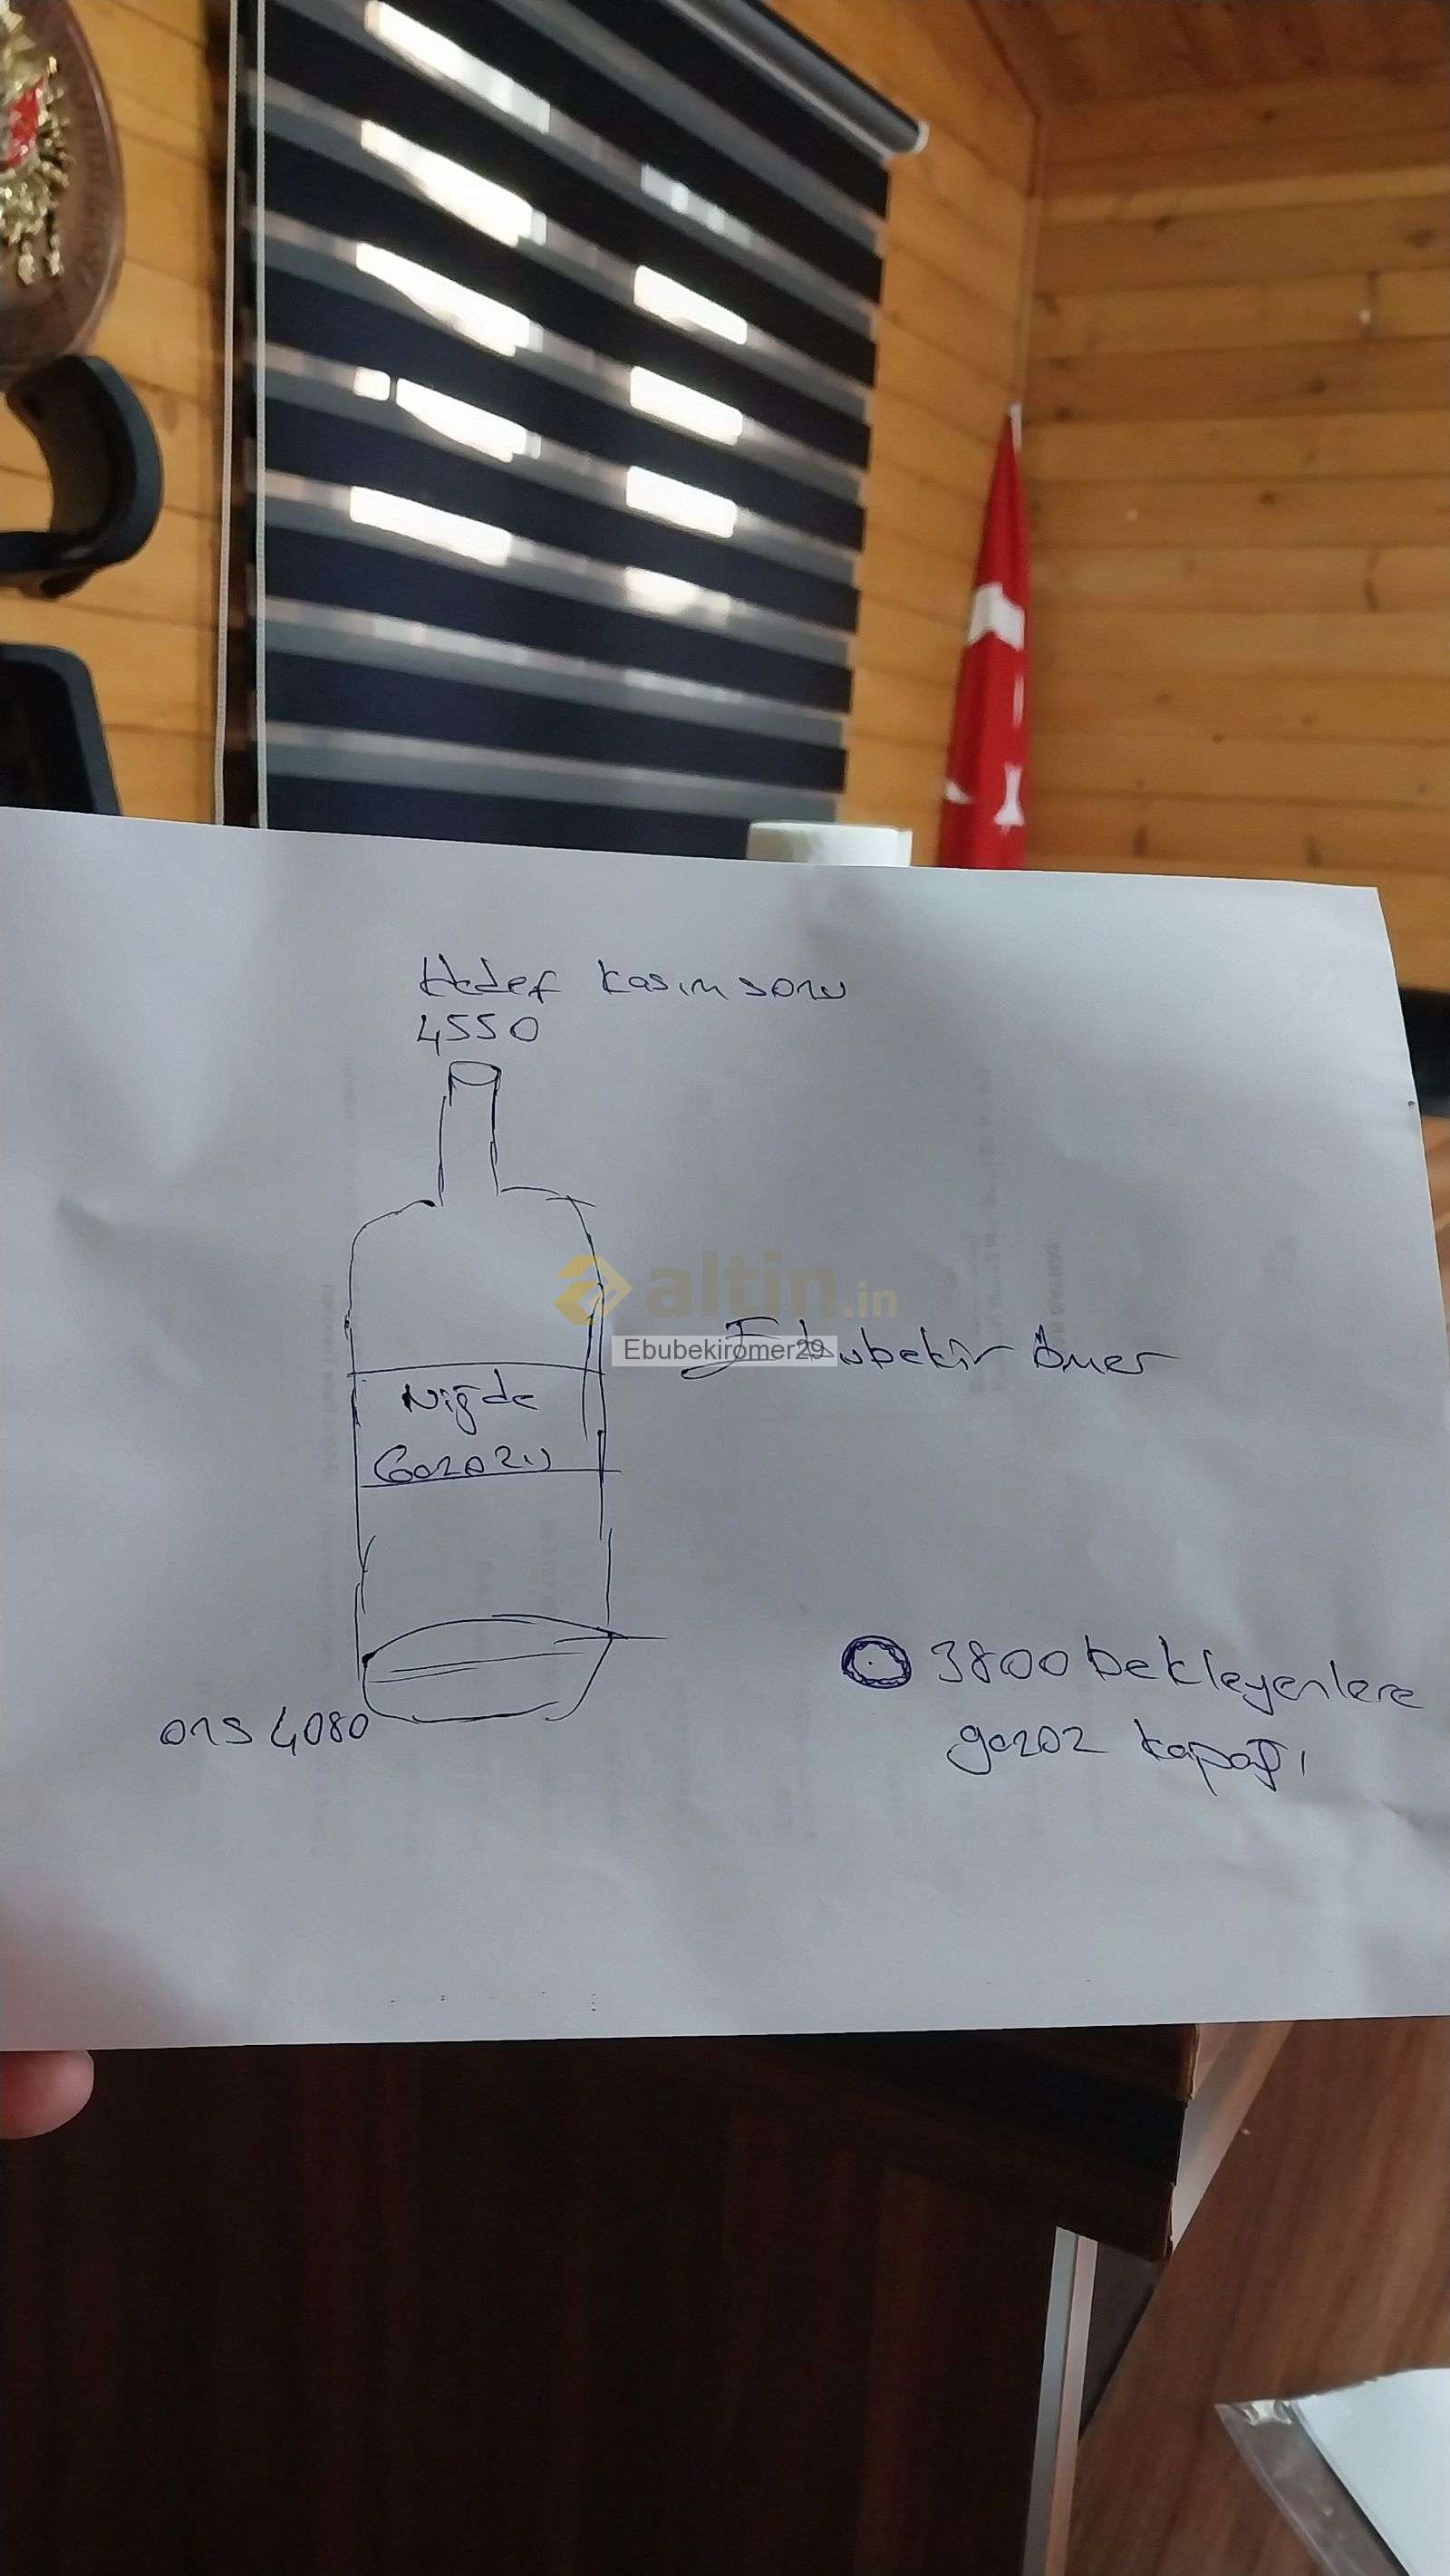 Hedef kasım sonu
4550
altin.in
Ebubekiromer29
Ebubekir Ömer
Niğde
Gazozu
3800 bekleyenlere
gazoz kapağı
ons 4080